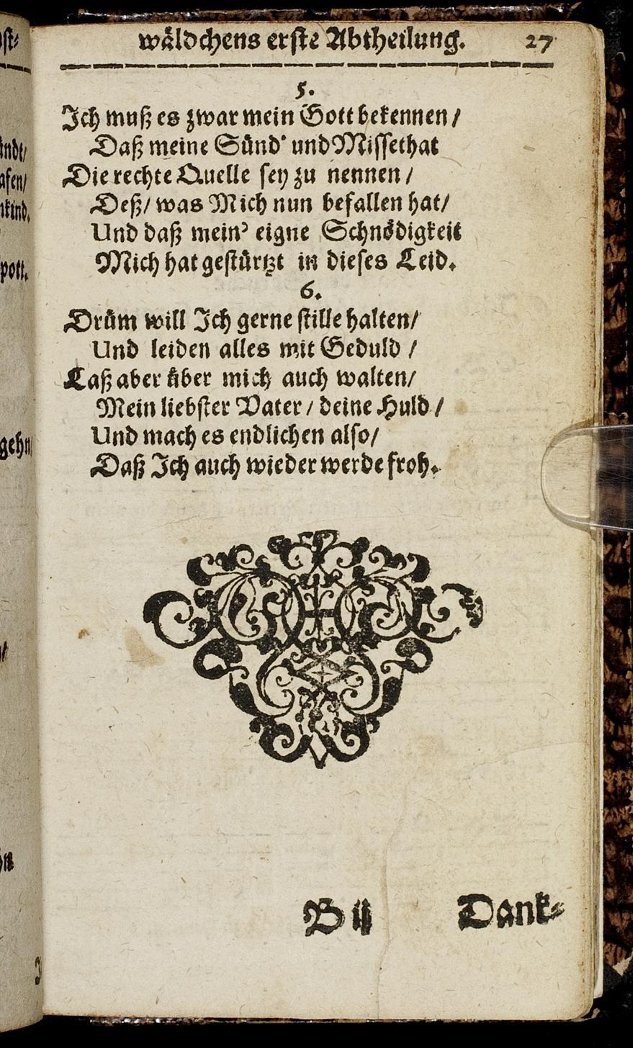 wäldchens erste Abtheilung. 27
5.
Ich muß es zwar mein Gott bekennen /
Daß meine Sünd' und Missethat
Die rechte Quelle sey zu nennen /
Deß / was Mich nun befallen hat /
Und daß mein' eigne Schnödigkeit
Mich hat gestürtzt in dieses Leid.
6.
Drüm will Ich gerne stille halten /
Und leiden alles mit Geduld /
Laß aber über mich auch walten /
Mein liebster Vater / deine Huld /
Und mach es endlichen also /
Daß Ich auch wieder werde froh.
B ij Dank-